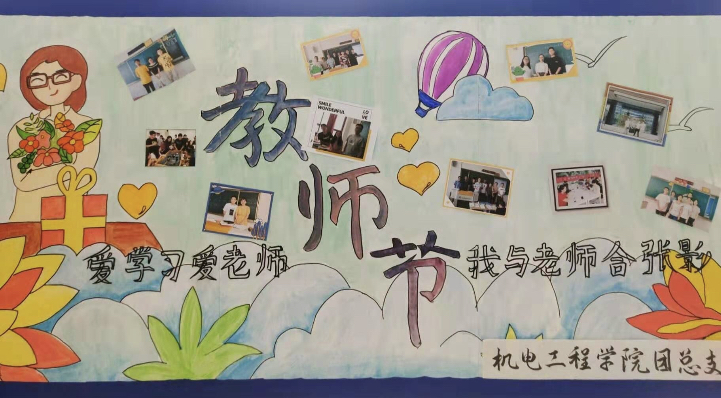 教师节
SMILE
WONDERFUL
LO
VE
爱学习爱老师
我与老师合张影
机电工程学院团总支